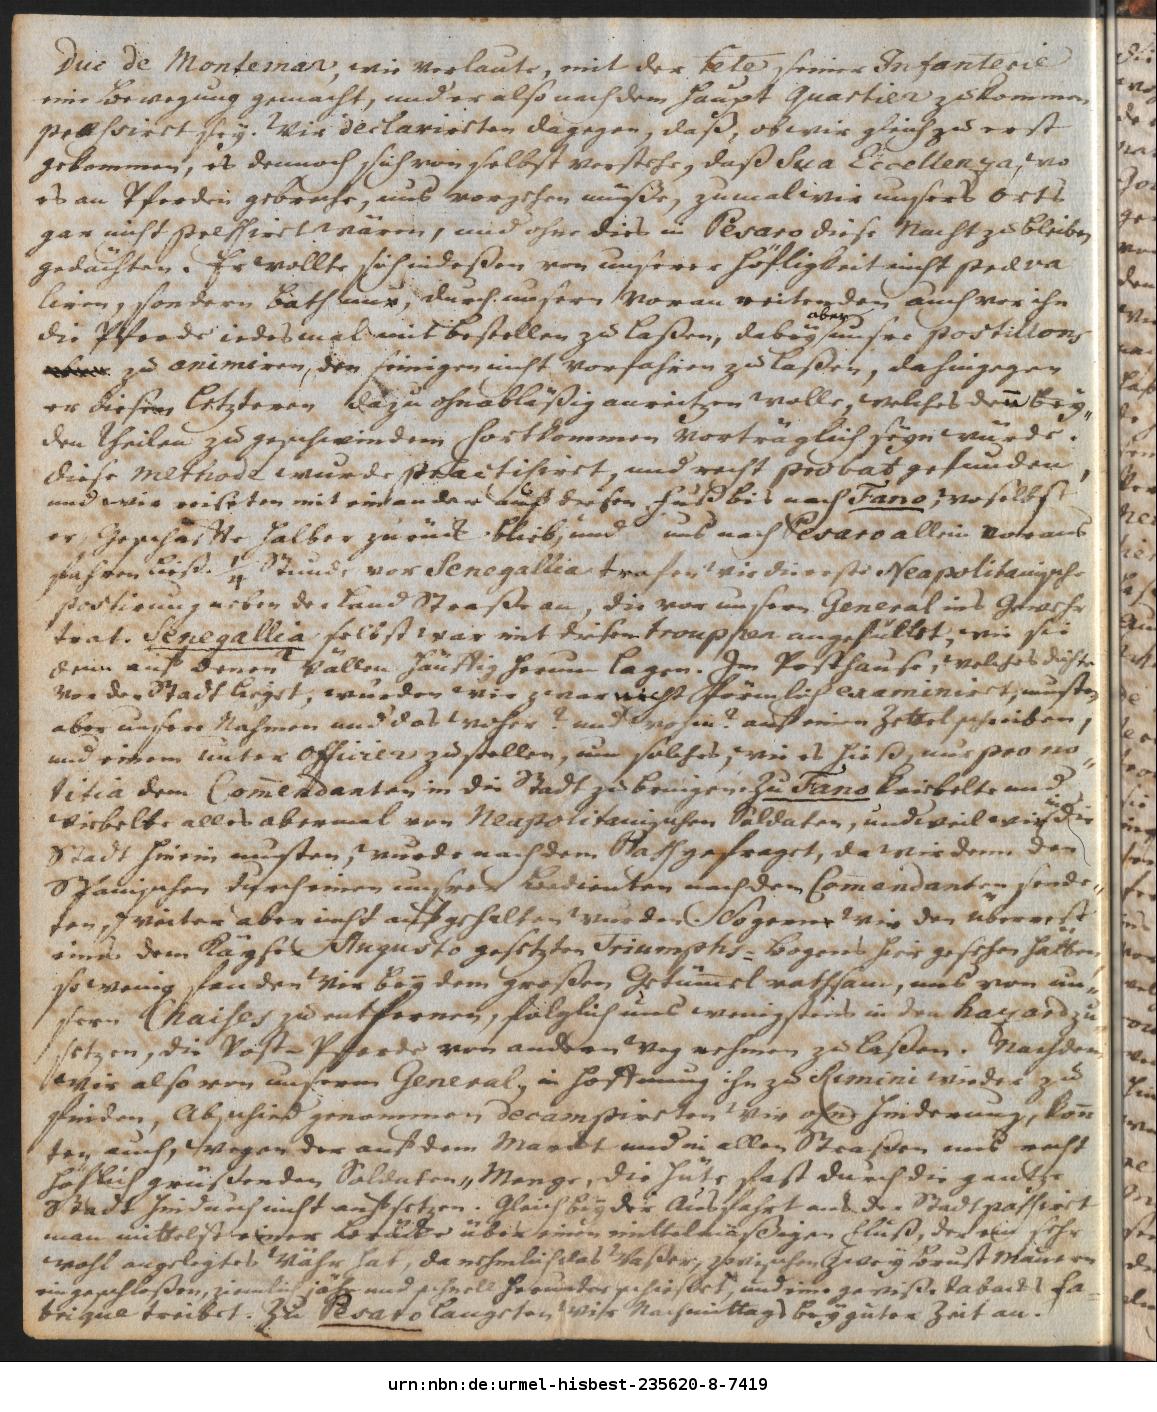 Duc de Montemar, wie verlaute, mit der Tete seiner Infanterie
eine Bewegung gemacht, und er also nach dem Haupt Quartier zu kommen
pressiret sey. Wir declarirten dagegen, daß, ob wir gleich zu erst
gekommen, es dennoch sich von selbst verstehe, daß Sua Eccellenza, wo
es an Pferden gebreche, uns vorgehen müße, zumal wir unsers Orts
gar nicht pressiret wären, und ohne dies in Pesaro diese Nacht zu bleiben
gedächten. Er wollte sich indeßen von unserer Höfligkeit nicht prædva
liren, sondern bath nur, durch unsern voran reitenden auch vor ihn
die Pferde iedesmal mit bestellen zu laßen, dabey aber unsre postillons
zu animiren, den seinigen nicht vorfahren zu laßen, dahingegen
er diesen letzteren dazu ohnabläßig anreitzen wolle, welches denn bey„
den Theilen zu geschwindem fortkommen vorträglich seyn würde.
Diese methode wurde practisiret, und recht probat gefunden,
und wir reiseten mit einander auf diesen Fuß bis nach Fano, woselbst
er Geschäffte halber zurück blieb, und uns nach Pesaro allein voraus
fahren ließ. 1/4 Stunde vor Senegallia trafen wir die erste Neapolitanische
postirung neben der Land Straße an, die vor unserm General ins Gewehr
trat. Senegallia selbst war mit diesen trouppen angefüllet, wie sie
denn auf denen Wällen häuffig herum lagen. Im Posthause, welches dichte
vor der Stadt lieget, wurden wir zwar nicht förmlich examiniret, musten
aber unsere Nahmen und das woher? und wohin? auf einen Zettel schreiben,
und einem unter Officier zustellen, um solches, wie es hieß, nur pro no„
titia dem Commendanten in die Stadt zu bringen. Zu Fano kriebelte und
wiebelte alles abermal von Neapolitanischen Soldaten, und weil wir in die
Stadt hinein musten, wurde nach dem Paß gefraget, da wir denn den
Spanischen durch einen unsrer Bedienten nach dem Commendanten sende„
ten, weiter aber nicht aufgehalten wurden. So gerne wir den überrest
eines dem Käyser Augusto gesetzten Triumphs-Bogens hier gesehen hätten,
so wenig fanden wir bey dem großen Getümmel rathsam, uns von un„
sern Chaises zu entfernen, folglich uns wenigstens in den hazard zu
setzen, die Post-Pferde von andern weg nehmen zu laßen. Nachdem
wir also von unserm General, in Hoffnung ihn zu Rimini wieder zu
finden, Abschied genommen decampirten wir ohne Hinderung, konn
ten auch, wegen der auf dem Marckt und in allen Straßen uns recht
höflich grüßenden Soldaten„Menge, die Hüte fast durch die gantze
Stadt hindurch nicht aufsetzen. Gleich bey der Ausfahrt aus der Stadt passiret
man mittelst einer Brücke über einen mittelmäßigen Fluß, der ein sehr
wohl angelegtes Währ hat, da nehmlich das Waßer, zwischen zwey Brust Mauern
eingeschloßen, ziemlich jähe und schnell herunter schießet, und eine gewiße tabacks fa-
brique treibet. Zu Pesaro langten wir Nachmittags bey guter Zeit an.
urn:nbn:de:urmel-hisbest-235620-8-7419